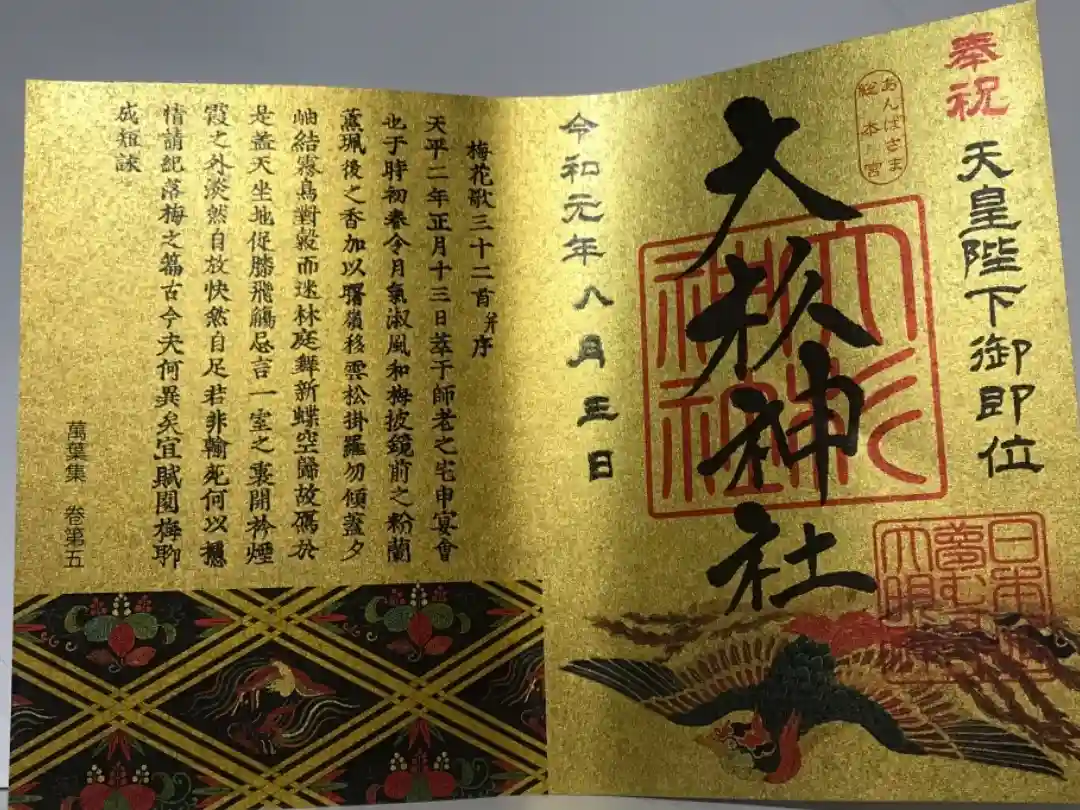 奉祝
天皇陛下御即位
あんばさま
総本宮
大杉神社
大杉
神社
令和元年八月三日
梅花歌三十二首并序
天平二年正月十三日萃于師老之宅申宴會
也于時初春令月氣淑風和梅披鏡前之粉蘭
薫珮後之香加以曙嶺移雲松掛羅勿傾蓋夕
岫結霧鳥對縠而迷林庭舞新蝶空歸故鴈於
是蓋天坐地促膝飛觴忘言一室之裏開衿煙
霞之外淡然自放快然自足若非翰苑何以攄
情請紀落梅之篇古今夫何異矣宜賦園梅聊
成短詠
萬葉集 巻第五